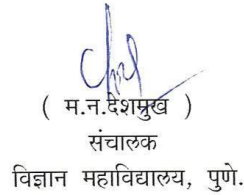 ( म.न.देशमुख )
संचालक
विज्ञान महाविद्यालय, पुणे.